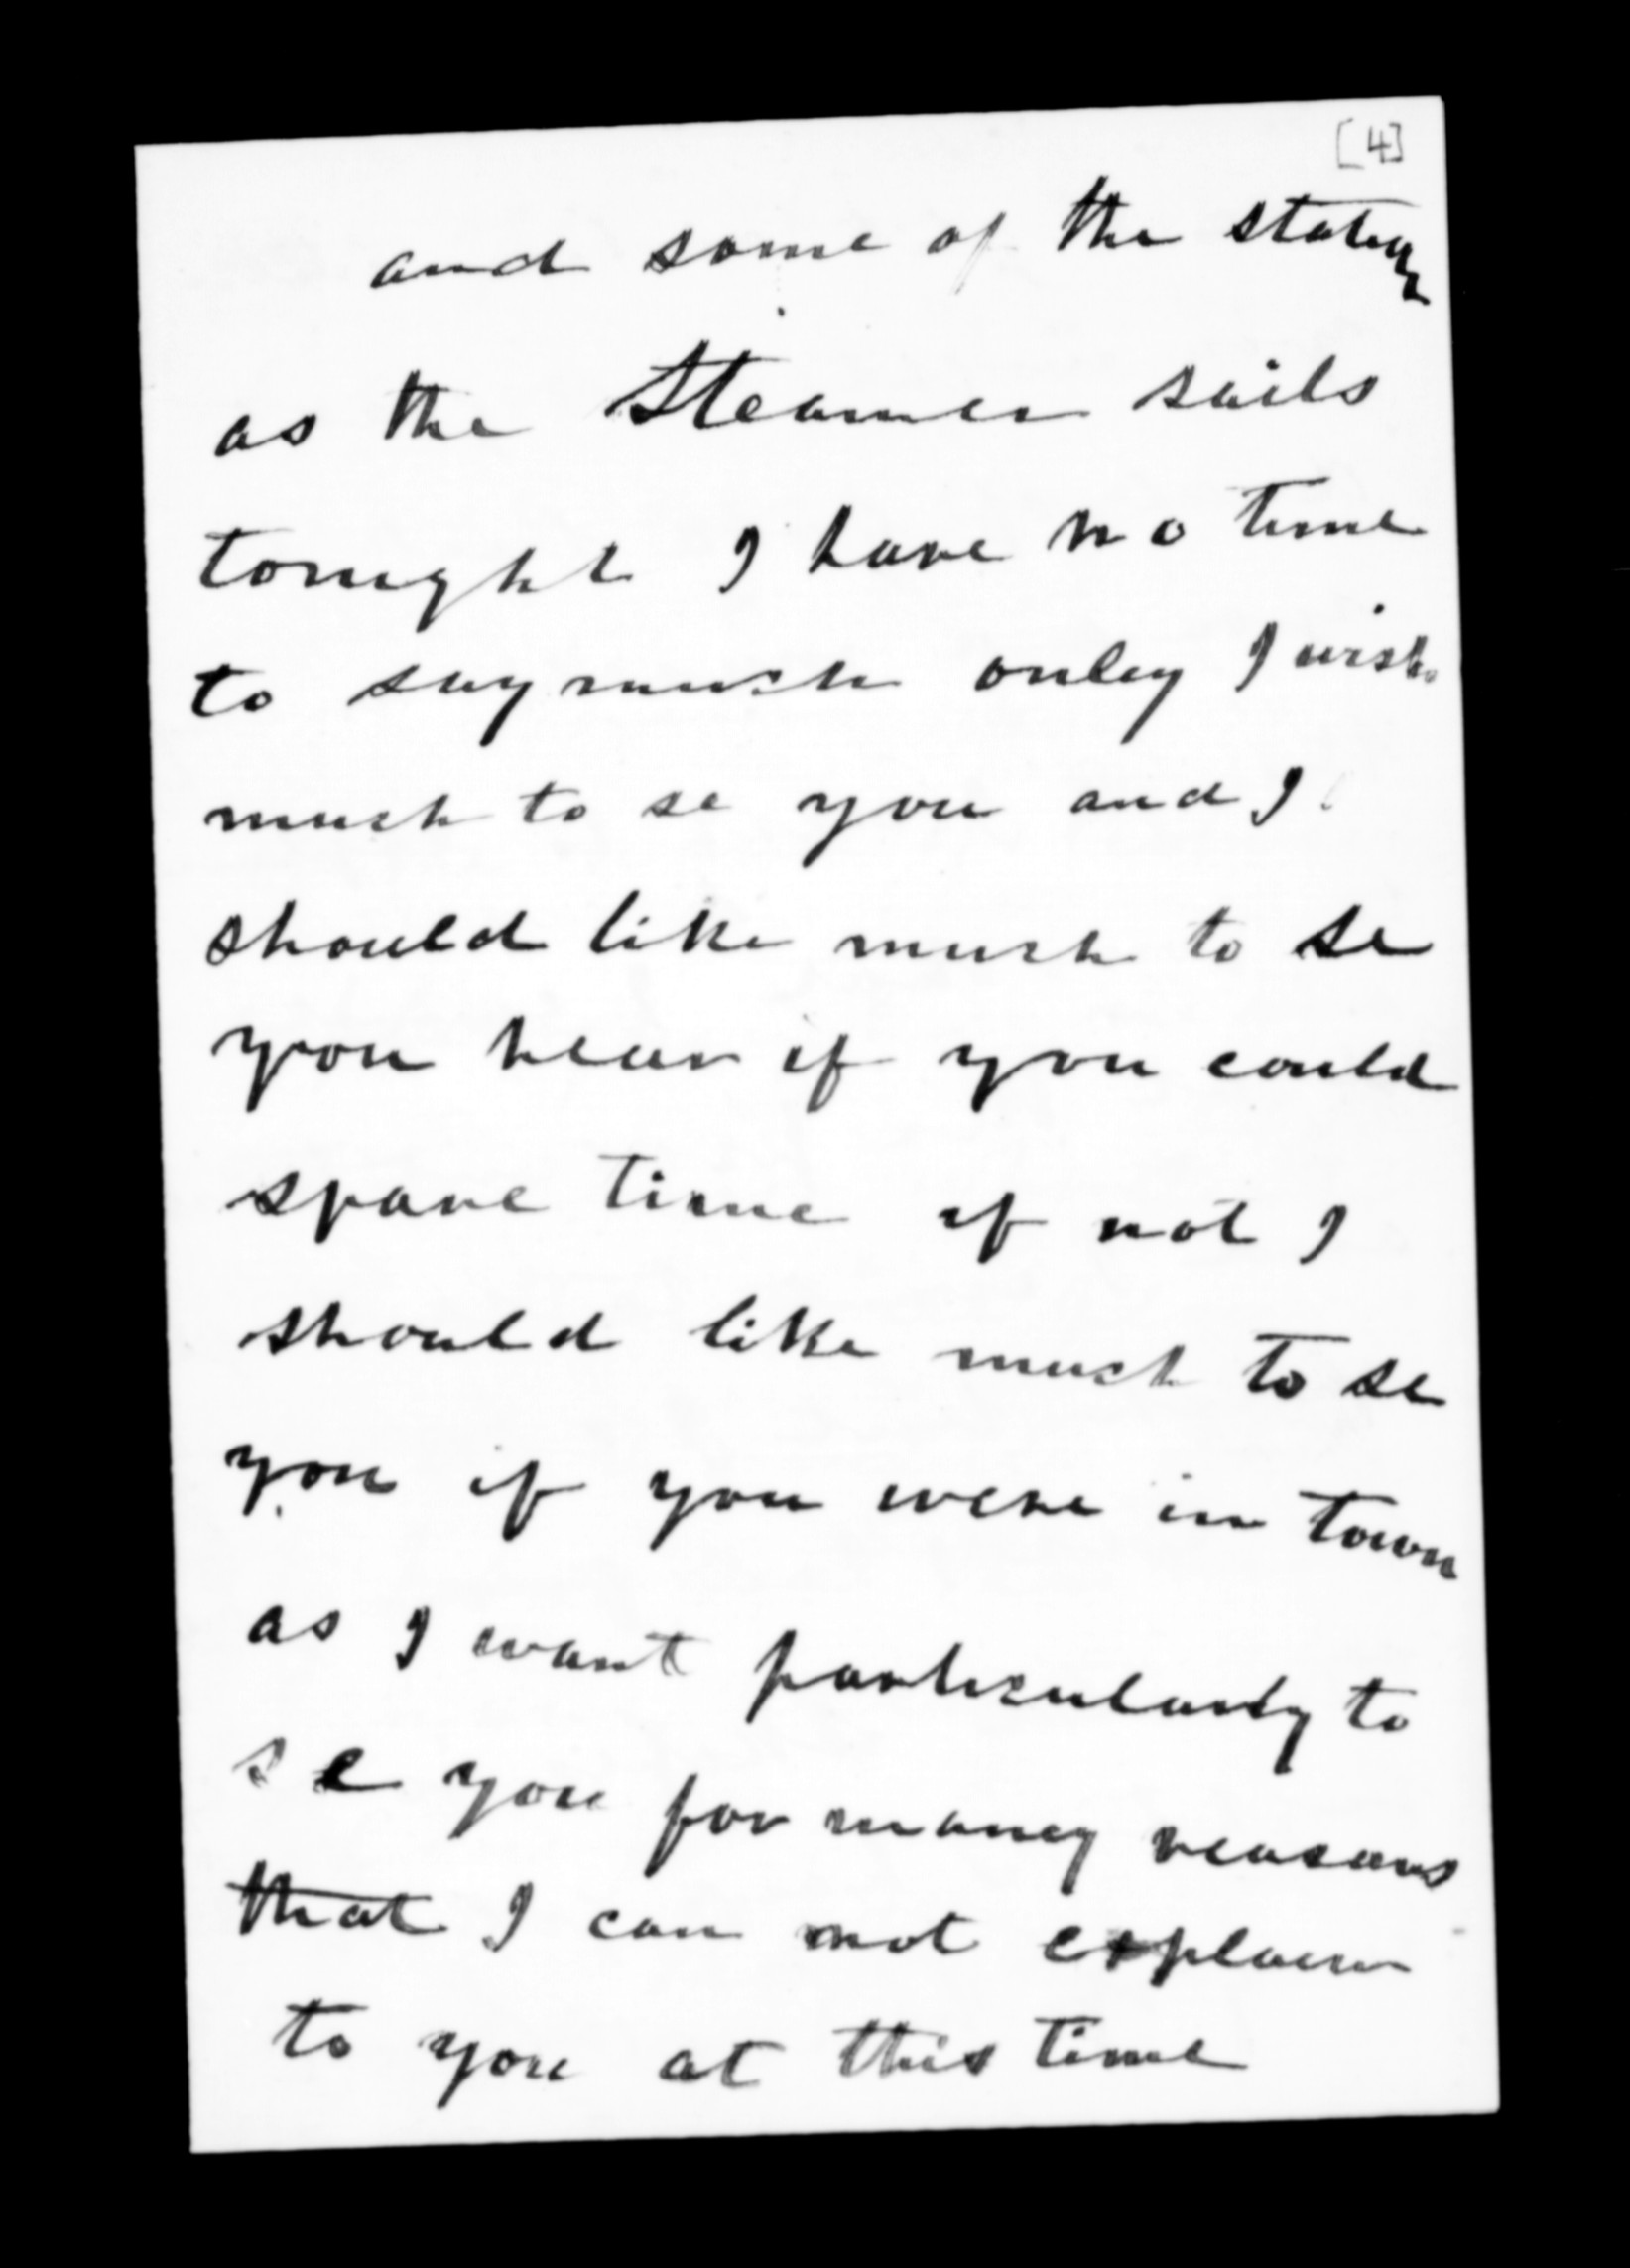 [4]
and some of the
as the Steamer sails
tonight I have no time
to say much only I wish
much to se you and I
should like much to se
you hear if you could
spare time if not I
should like much to se
you if you were in town
as I want particularly to
se you for many reasons
that I can not explain
to you at this time